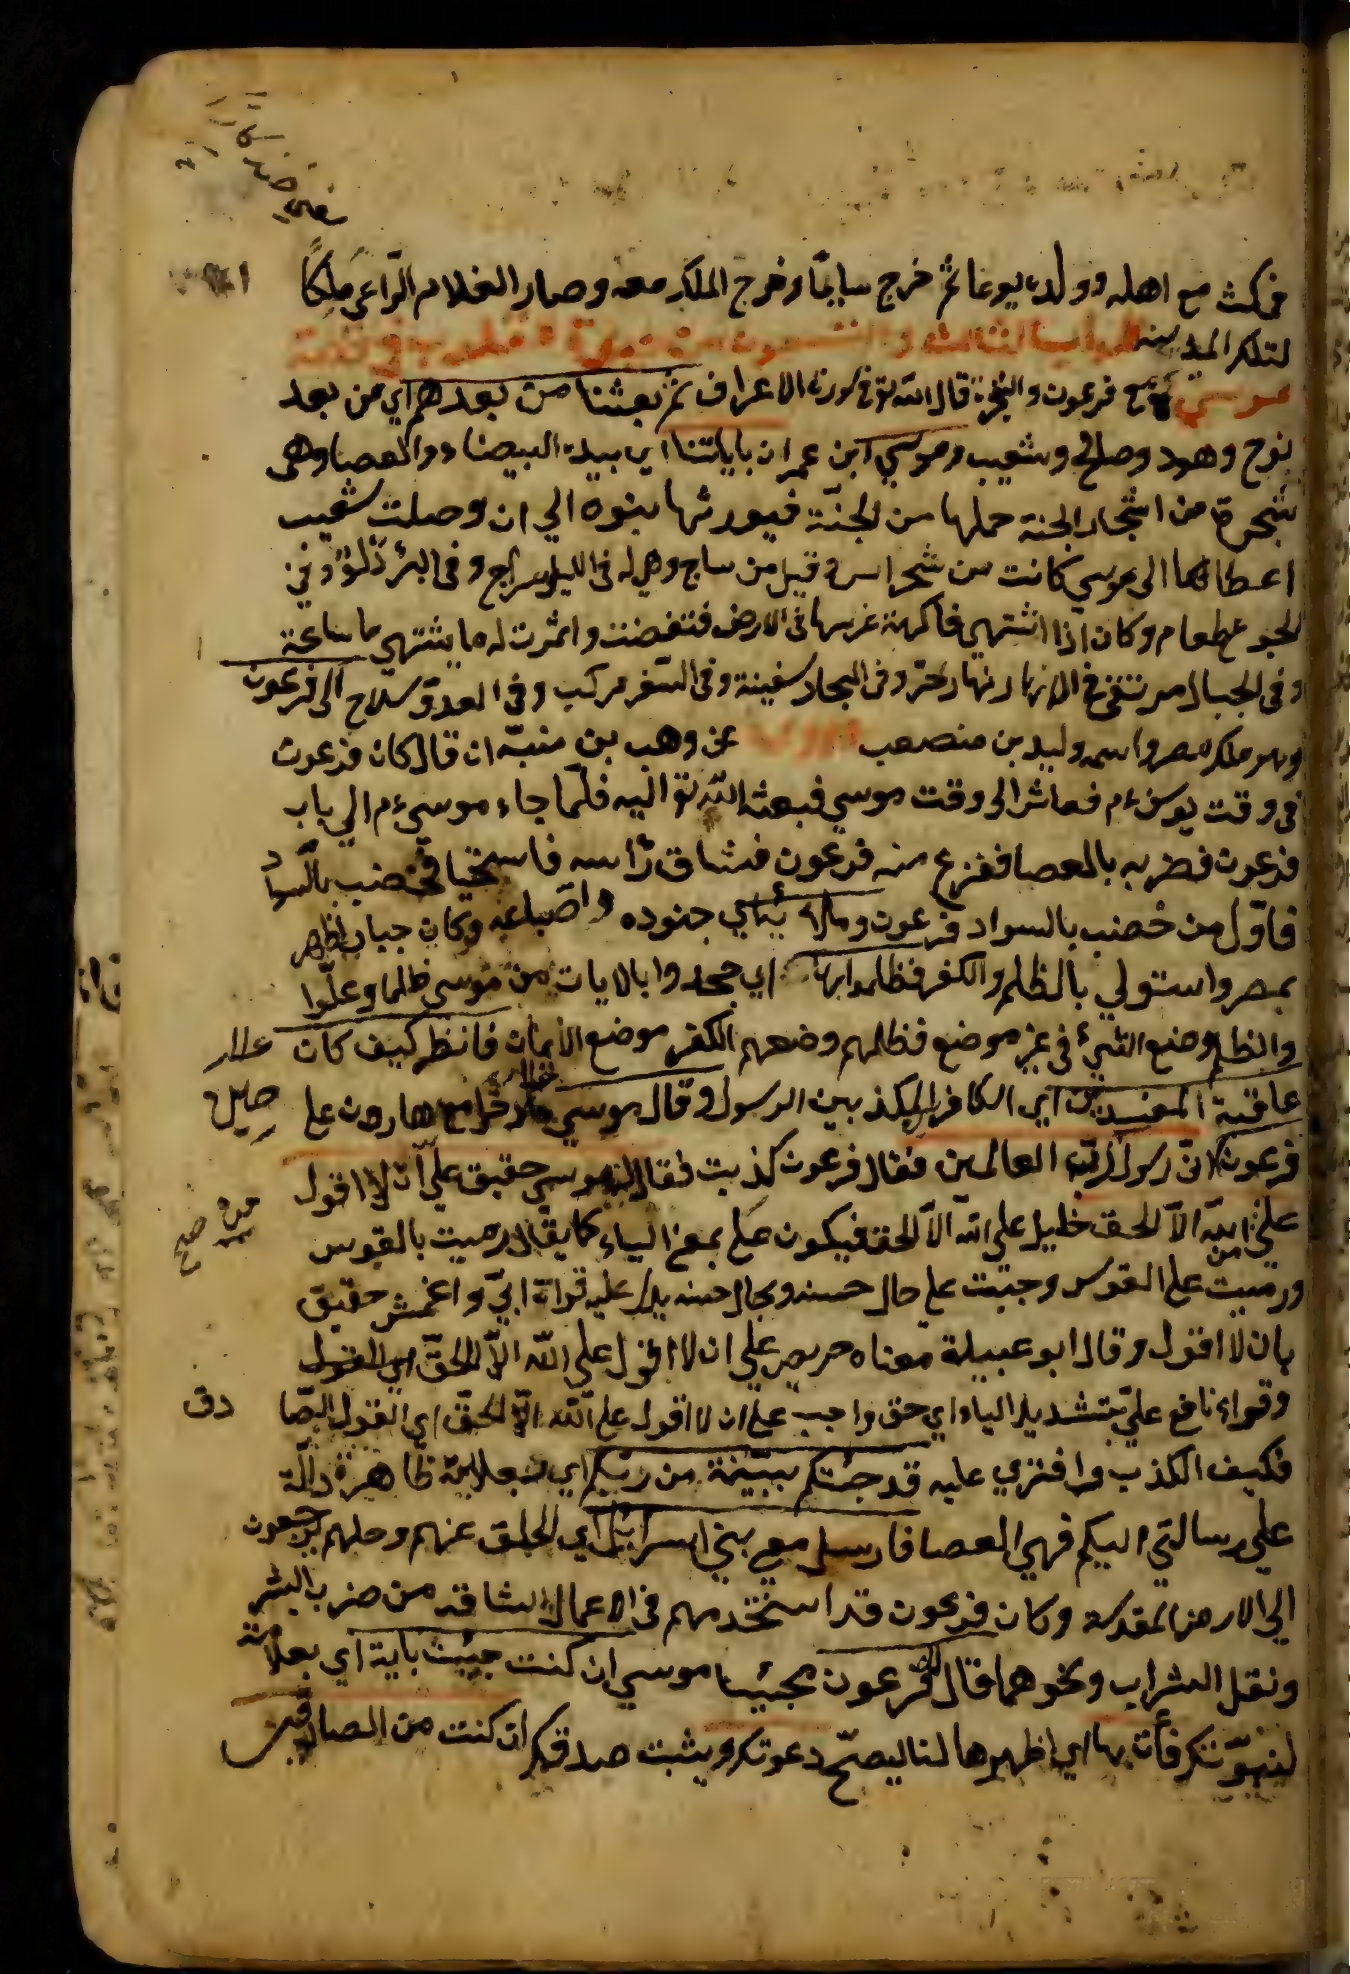 فمكث مع اهله وولده يوما ثم خرج سايحًا وخرج الملك معه وصار الغلام الرّاعي مَلِكًا
لتلك المدينة الباب الثالث و من في قصة
موسى مع فرعون والسحرة قال الله تع في سورة الاعراف ثم بعثنا من بعدهم اي من بعد
نوح وهود وصالح وشعيب وموسي ابن عمران باياتنا اي بيده البيضاء والعصا وهي
شجرة من اشجار الجنة حملها من الجنّة فيورثها بنوه الي ان وصلت شعيب
اعطاها الى موسي كانت من شجر اس وقيل من ساج وهي له في الليل سراج وفي البئر دَلْوٌ وفي
الجوع طعام وكان اذا اشتهي فاكهة غرسها في الارض فتغضنت واثمرت له ما يشتهي ساعة
وفي الجبال وفي البحار سفينة وفي السّفر مركب وفي العدوّ سلاح الى فرعون
وهو ملك مصر واسمه وليد بن مصعب عن وهب بن منبّه ان قال كان فرعون
في وقت يوسف ءم فعاش الى وقت موسي فبعثه الله تع اليه فلمّا جاء موسي ءم الي باب
فرعون فضربه بالعصا ففزع منه فرعون فشاب رأسه فاستحيا فخضب بالسواد
فاوّل من خضب بالسواد فرعون وملائه يبني اي جنوده واصباعه وكان جبارا ظهر
بمصر واستولي بالظلم والكفر فظلموا بها اي جحدوا بالايات من موسي ظلما وعلوّا
والظلم وضع الشيء في غير موضع فظلمهم وضعهم الكفر موضع الايمان فانظر كيف كان
عاقبة المفسدين اي الكافر المكذبين الرسول وقال موسي هارون علي
فرعون اني رسول ربّ العالمين فقال فرعون كذبت فقال موسي حقيق علي ان لا اقول
علي الله الا الحق علي الله الا الحق فيكون علي بمعني الباء كما يقال رميت بالقوس
ورميت على القوس وجئت علي حال حسنه وبحال حسنه يدل عليه قراة ابيّ واعمش حقيق
بان لا اقول وقال ابو عبيدة معناه حريص علي ان لا اقول علي الله الّا الحقّ
وقراء نافع عليّ بتشديد الياء اي حق واجب علي ان لا اقول علي الله الا الحقّ اي القول الصا
دق
فكيف الكذب وافتري عليه قد جئتكم ببيّنة من ربّكم اي بعلامة ظاهرة دالّة
علي رسالتي اليكم فهي العصا فارسل معي بني اسرائيل اي اطلق عنهم وخلهم يرجعون
الي الارض المقدسة وكان فرعون قد استخدمهم في الاعمال الشاقة من ضرب البشر
ونقل التراب ونحوهما قال فرعون مجيبا موسي ان كنت جئت باية اي بعلامة
لنبوّتك فأت بها اي اظهرها لنا ليصحّ دعوتك ويثبت صدقك ان كنت من الصادقين